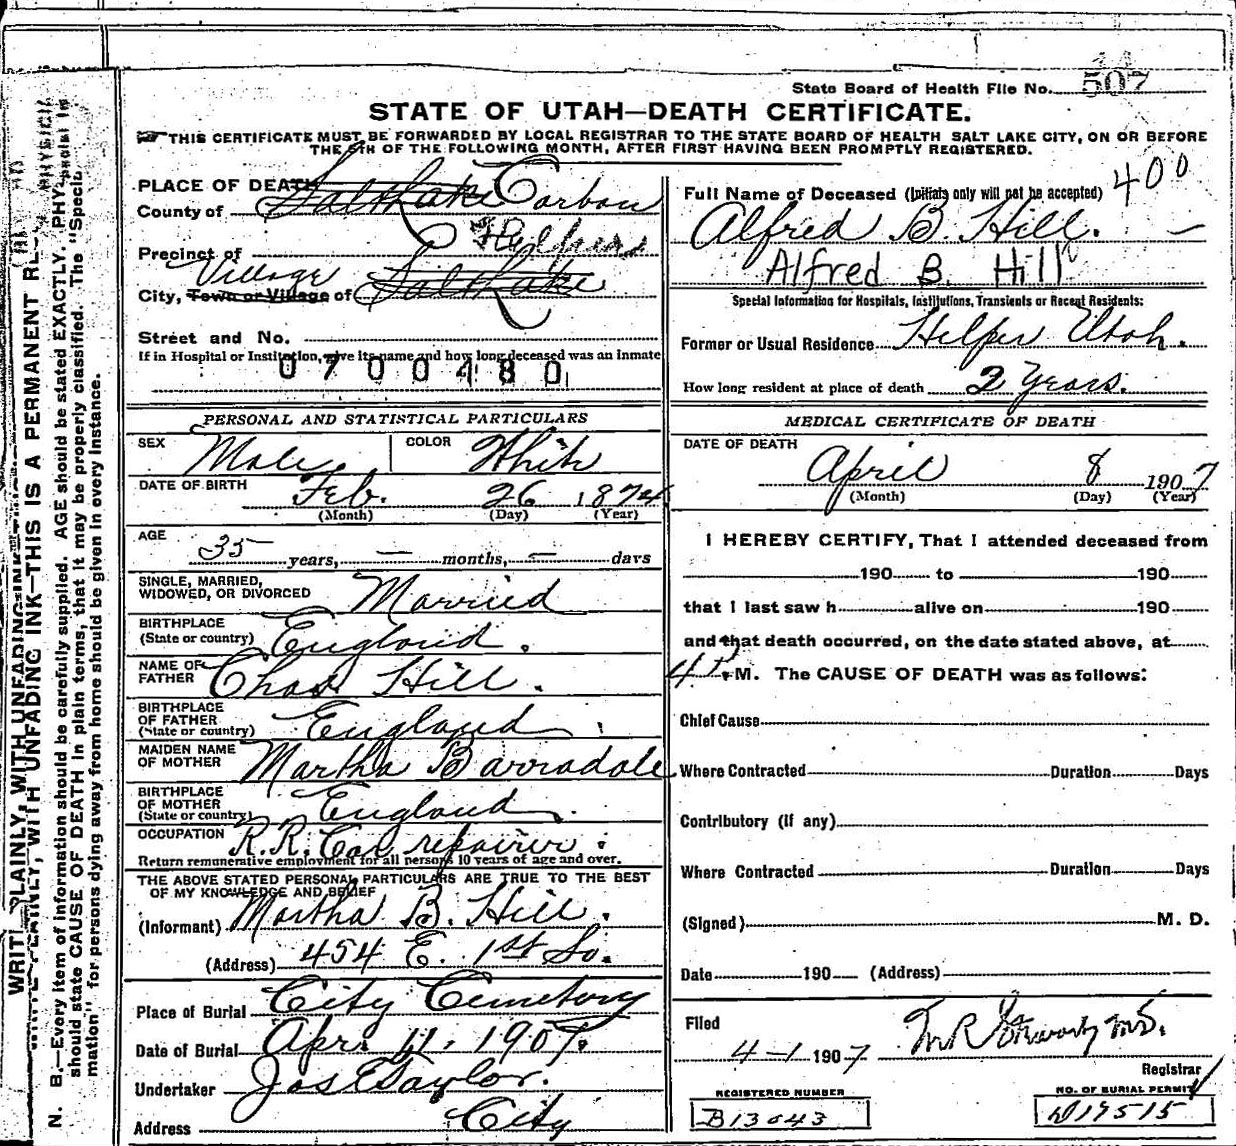 State Board of Health File No. 507
STATE OF UTAH—DEATH CERTIFICATE.
THIS CERTIFICATE MUST BE FORWARDED BY LOCAL REGISTRAR TO THE STATE BOARD OF HEALTH SALT LAKE CITY, ON OR BEFORE
THE 5TH OF THE FOLLOWING MONTH, AFTER FIRST HAVING BEEN PROMPTLY REGISTERED.
PLACE OF DEATH
County of Salt Lake Carbon
Precinct of Helper
Village
City, Town or Village of Salt Lake
Street and No.
If in Hospital or Institution, give its name and how long deceased was an inmate
0700480
PERSONAL AND STATISTICAL PARTICULARS
SEX Male COLOR White
DATE OF BIRTH Feb. 26 1874
(Month) (Day) (Year)
AGE 35 years, — months, — days
SINGLE, MARRIED,
WIDOWED, OR DIVORCED Married
BIRTHPLACE
(State or country) England.
NAME OF
FATHER Chas Hill.
BIRTHPLACE
OF FATHER
(State or country) England
MAIDEN NAME
OF MOTHER Martha Barradale
BIRTHPLACE
OF MOTHER
(State or country) England.
OCCUPATION R.R. Car repairer
Return remunerative employment for all persons 10 years of age and over.
THE ABOVE STATED PERSONAL PARTICULARS ARE TRUE TO THE BEST
OF MY KNOWLEDGE AND BELIEF
(Informant) Martha B. Hill.
(Address) 454 E. 1st So.
Place of Burial City Cemetery
Date of Burial Apr. 11. 1907.
Undertaker Jos E Taylor.
Address City
Full Name of Deceased (Initials only will not be accepted) 400
Alfred B. Hill. —
Alfred B. Hill
Special Information for Hospitals, Institutions, Transients or Recent Residents:
Former or Usual Residence Helper Utah.
How long resident at place of death 2 Years.
MEDICAL CERTIFICATE OF DEATH
DATE OF DEATH
April 8 1907
(Month) (Day) (Year)
I HEREBY CERTIFY, That I attended deceased from
190 to 190
that I last saw h alive on 190
and that death occurred, on the date stated above, at
4 P. M. The CAUSE OF DEATH was as follows:
Chief Cause
Where Contracted Duration Days
Contributory (if any)
Where Contracted Duration Days
(Signed) M. D.
Date 190 (Address)
Filed
4-1 1907
Registrar
REGISTERED NUMBER
B13643
NO. OF BURIAL PERMIT
D19515
N. B.—Every item of information should be carefully supplied. AGE should be stated EXACTLY. PHYSICIANS
should state CAUSE OF DEATH in plain terms, that it may be properly classified. The "Special
mation" for persons dying away from home should be given in every instance.